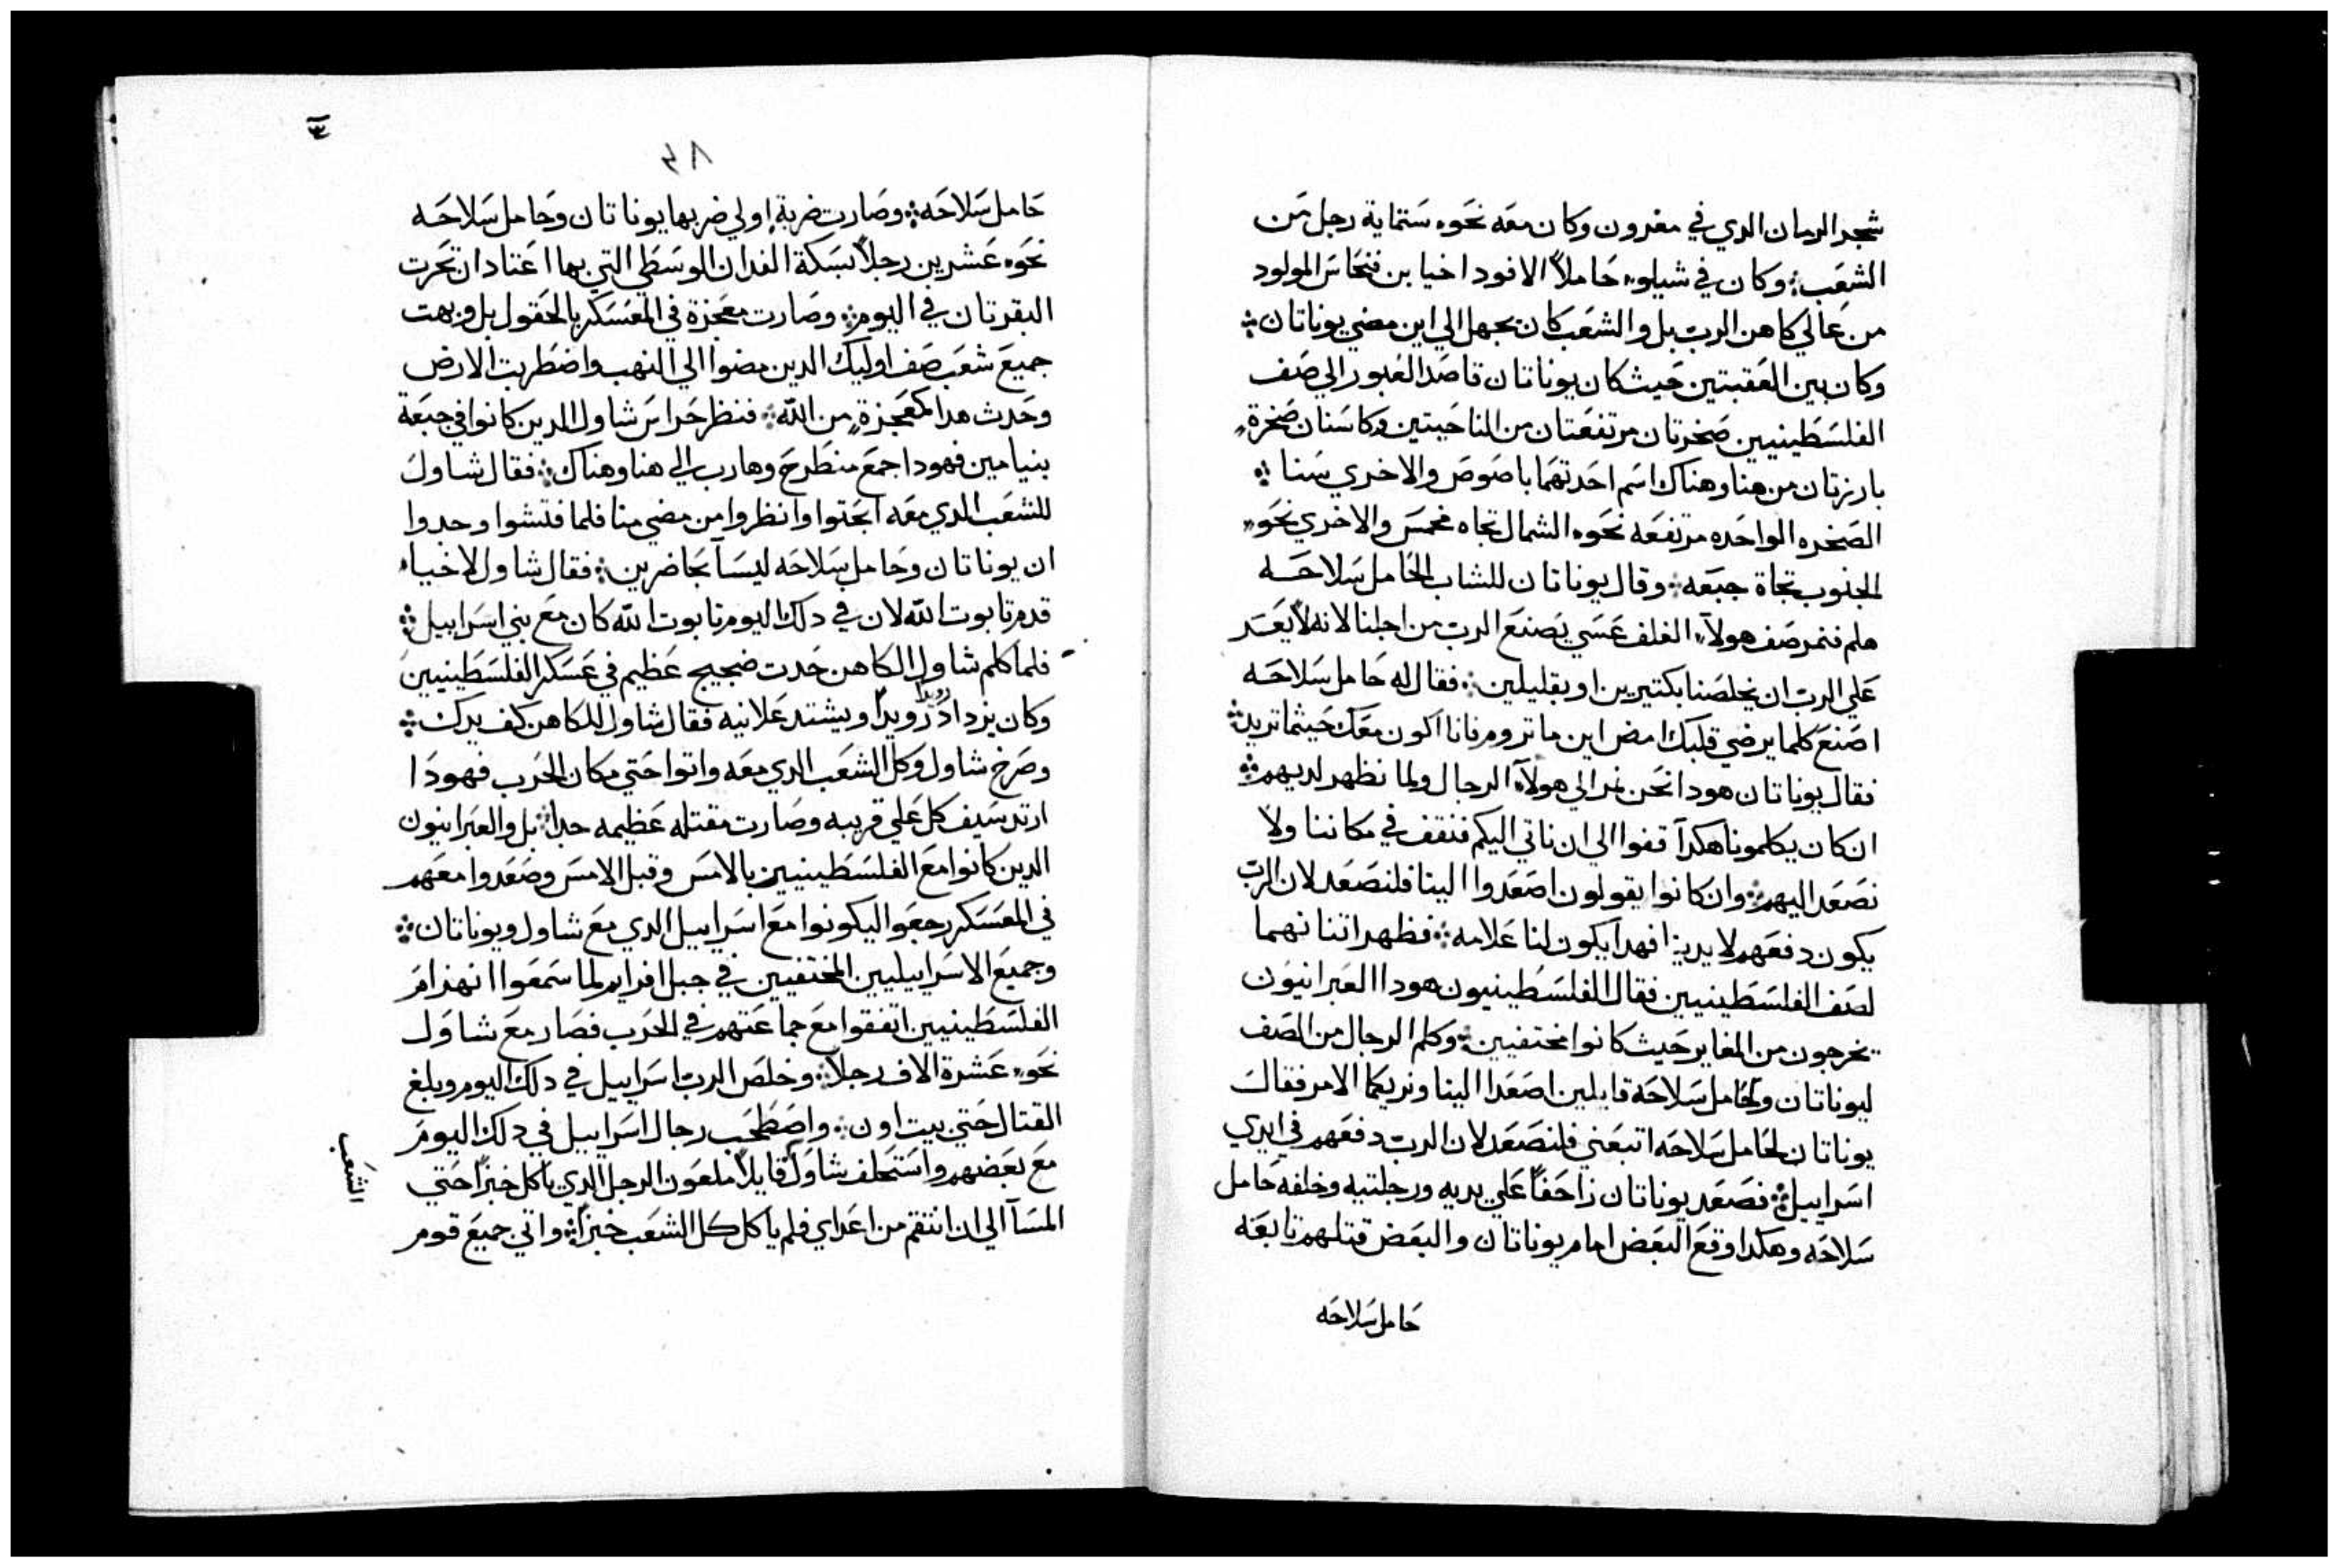 شجر الرمان الدي في مغرون وكان معه نحوه ستماية رجل من
الشعب ܀ وكان في شيلوء حاملاً الافود اخيا بن فنحاس المولود
من عالي كاهن الرب بل والشعب كان يجهل الي اين مضي يوناتان ܀
وكان بين العقبتين حيث كان يوناتان قاصد العبور الي صف
الفلسطينيين صخرتان مرتفعتان من الناحيتين وكاسنان صخرة
بارزتان من هنا وهناك اسم احدتهما باصوص والاخري سنا ܀
الصخره الواحده مرتفعه نحوه الشمال تجاه مخمس والاخري نحوء
الجنوب تجاة جبعه ܀ وقال يوناتان للشاب الحامل سلاحه
هلم فنمر صف هولاء الغلف عسي يصنع الرب من اجلنا لانه لا يعسر
علي الرب ان يخلصنا بكتيرين او بقليلين ܀ فقال له حامل سلاحه
اصنع كلما يرضي قلبك امض اين ما تروم فانا اكون معك حيثما تريد ܀
فقال يوناتان هودا نحن نمر الي هولآء الرجال ولما نظهر لديهم ܀
ان كان يكلمونا هكدآ قفوا الي ان ناتي اليكم فنقف في مكاننا ولا
نصعد اليهم ܀ وان كانوا يقولون اصعدوا الينا فلنصعد لان الرب
يكون دفعهم لايدينا فهدا يكون لنا علامه ܀ فظهرا تنا نهما
لصف الفلسطينيين فقال الفلسطينيون هودا العبرانيون
يخرجون من المغاير حيث كانوا مختفيين ܀ وكلم الرجال من الصف
ليوناتان ولحامل سلاحه قايلين اصعدا الينا ونريكما الامر فقال
يوناتان لحامل سلاحه اتبعني فلنصعد لان الرب دفعهم في ايدي
اسراييل ܀ فصعد يوناتان زاحفاً علي يديه ورجلتيه وخلفه حامل
سلاحه وهكدا وقع البعض امام يوناتان والبعض قتلهم تابعه
حامل سلاحه
٣٨
حامل سلاحه ܀ وصارت ضربة اولي ضربها يوناتان وحامل سلاحه
نحوه عشرين رجلاً بسكة الفدان الوسطي التي بها اعتاد ان تحرت
البقرتان في اليوم ܀ وصارت معجزة في المعسكر بالحقول بل وبهت
جميع شعب صف اوليك الدين مضوا الي النهب واضطربت الارض
وحدث هدا كمعجزة من الله ܀ فنظر حراس شاول الدين كانوا في جبعة
بنيامين فهودا جمع منطرح وهارب الي هنا وهناك ܀ فقال شاول
للشعب الدي معه ابحتوا وانظروا من مضي منا فلما فتشوا وحدوا
ان يوناتان وحامل سلاحه ليسآ بحاضرين ܀ فقال شاول لاخياء
قدم تابوت الله لان في دلك اليوم تابوت الله كان مع بني اسراييل ܀
فلما كلم شاول الكاهن حدت ضجيج عظيم في عسكر الفلسطينيين
وكان يزداد رويداً رويداً ويشتد علانيه فقال شاول للكاهن كف يدك ܀
وصرخ شاول وكل الشعب الدي معه واتوا حتي مكان الحرب فهودا
ارتد سيف كل علي قريبه وصارت مقتله عظيمه جدا ܀ بل والعبرانيون
الدين كانوا مع الفلسطينيين بالامس وقبل الامس وصعدوا معهم
في المعسكر رجعوا ليكونوا مع اسراييل الدي مع شاول ويوناتان ܀
وجميع الاسراييليين المختفيين في جبل افرايم لما سمعوا انهزام
الفلسطينيين اتفقوا مع جماعتهم في الحرب فصار مع شاول
نحوء عشرة الاف رجلاً ܀ وخلص الرب اسراييل في دلك اليوم وبلغ
القتال حتي بيت اون ܀ واصطحب رجال اسراييل في دلك اليوم
مع بعضهم واستحلف شاول قايلاً ملعون الرجل الدي ياكل خبزاً حتي
المسآ الي ان انتقم من اعداي فلم ياكل كل الشعب خبزاً ܀ واتي جميع قوم
الشعب